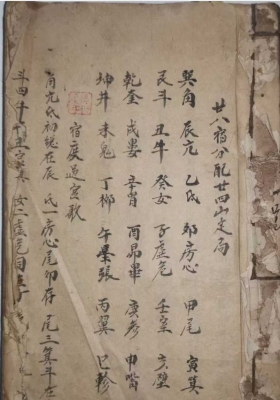 廿八宿分配廿四山定局
巽角 辰亢 乙氐 卯房心 甲尾 寅箕
艮斗 丑牛 癸女 子虛危 壬室 亥壁
乾奎 戌婁 辛胃 酉昴畢 庚參 申觜
坤井 未鬼 丁柳 午星張 丙翼 巳軫
宿度過宮歌
角亢氐初說在辰 氐一房心尾卯存 尾三箕斗在
斗四牛 丑 女二虛危同子